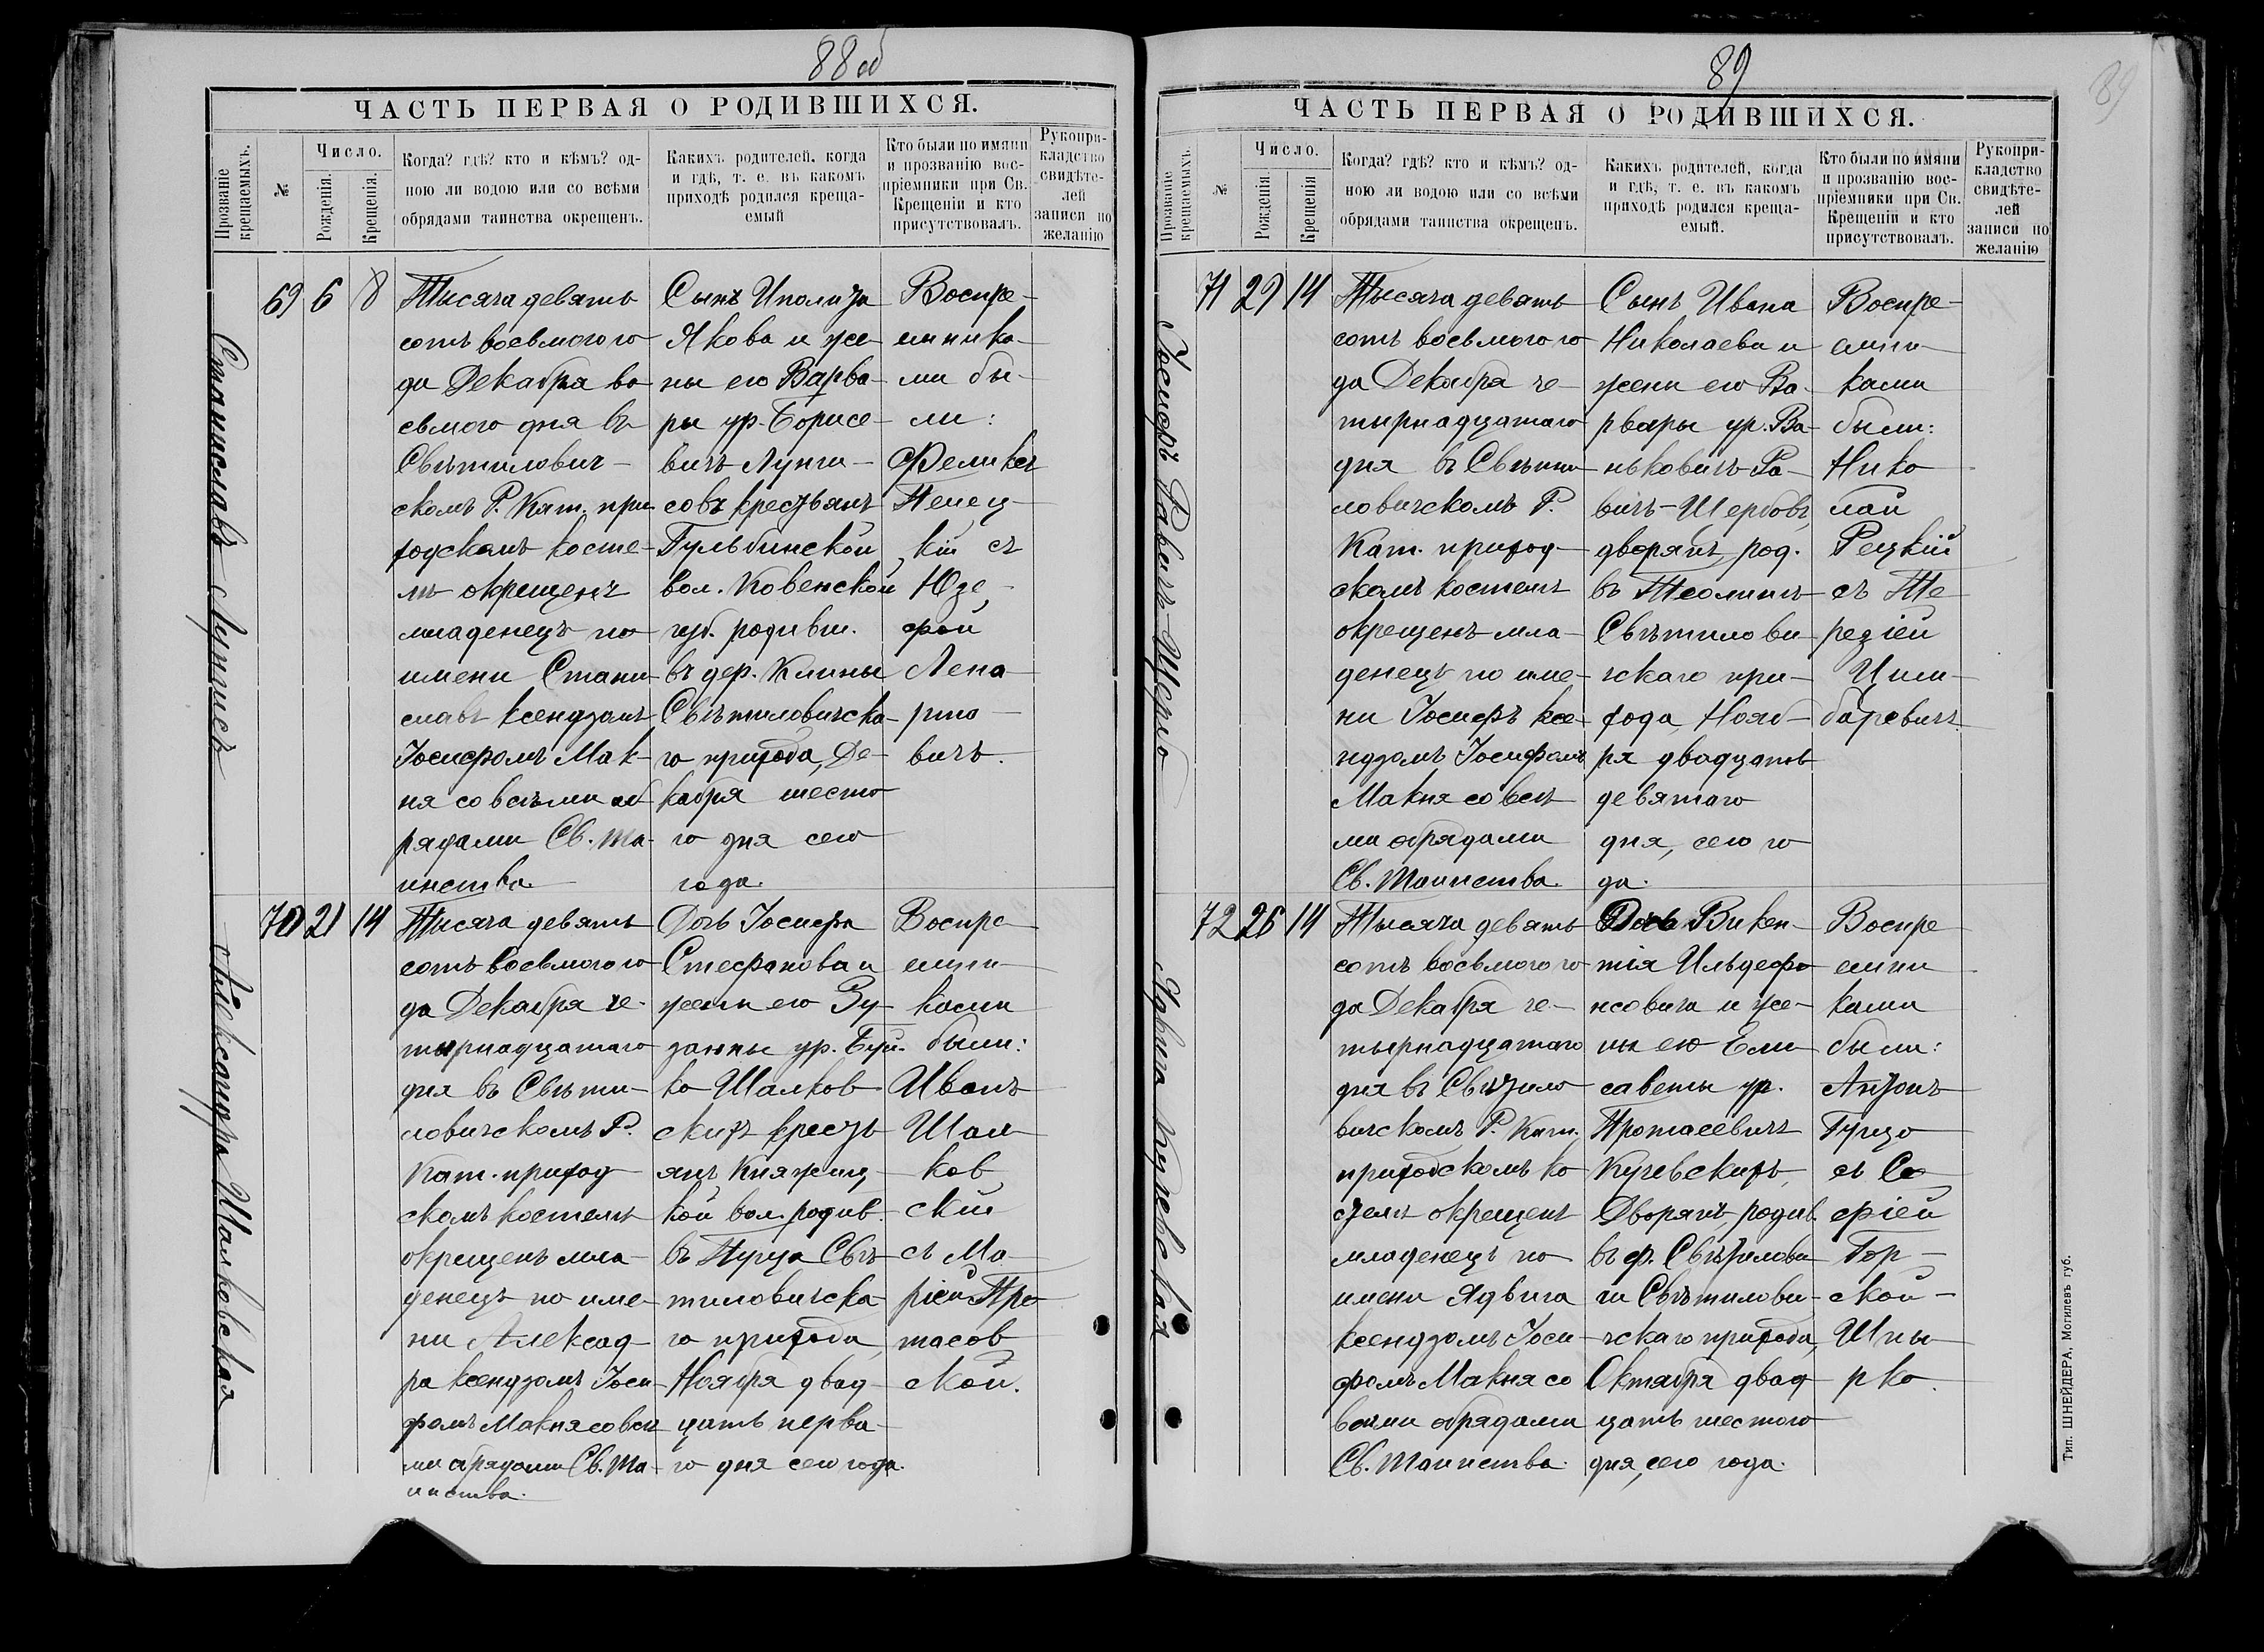 88 об
ЧАСТЬ ПЕРВАЯ О РОДИВШИХСЯ.
Прозваніе крещаемыхъ.
№
Число.
Рожденія.
Крещенія.
Когда? гдѣ? кто и кѣмъ? од-
ною ли водою или со всѣми
обрядами таинства окрещенъ.
Какихъ родителей, когда
и гдѣ, т. е. въ какомъ
приходѣ родился креща-
емый
Кто были по имяни
и прозванію вос-
пріемники при Св.
Крещеніи и кто
присутствовалъ.
Рукопри-
кладство
свидѣте-
лей
записи по
желанію
Станиславъ Лунписъ
69 6 8
Тысяча девять
сотъ восьмого го
да Декабря во
сьмого дня въ
Свѣтилович-
скомъ Р. Кат. при
ходскомъ косте-
лѣ окрещенъ
младенецъ по
имени Стани
славъ ксендзомъ
Іосифомъ Мак-
ня со всѣми об
рядами Св. Та-
инства.
Сынъ Иполита
Якова и же
ны его Варва-
ры ур. Борисе-
вичъ Лунпи-
совъ крестьянъ
Гульбинской
вол. Ковенской
губ. родивш.
въ дер. Клины
Свѣтиловичска-
го прихода, Де-
кабря шесто
го дня сего
года.
Воспре-
емника-
ми бы-
ли:
Феликсъ
кій съ
Юзе-
фой
Лена
рто
вичъ.
Александра Шалковская
70 21 14
Тысяча девять
сотъ восьмого го
да Декабря че-
тырнадцатаго
дня въ Свѣти-
ловичскомъ Р.
Кат. приход
скомъ костелѣ
окрещенъ мла-
денецъ по име-
ни Алексад-
ра ксендзомъ Іоси
фомъ Макня со всѣ
ми обрядами Св. Та-
инства.
Дочь Іосифа
Стефанова и
жены его Зу-
занны ур. Буй-
ко Шалков
скихъ кресть
янъ Княжиц
кой вол. родив.
въ Свѣ-
тиловичска-
го прихода
Ноября двад-
цать перва-
го дня сего года.
Воспре
емни
ками
были:
Иванъ
Шал
ков
скій
съ Ма
ріей Про
тасов
ской.
89
89
ЧАСТЬ ПЕРВАЯ О РОДИВШИХСЯ.
Прозваніе крещаемыхъ.
№
Число.
Рожденія.
Крещенія
Когда? гдѣ? кто и кѣмъ? од-
ною ли водою или со всѣми
обрядами таинства окрещенъ.
Какихъ родителей, когда
и гдѣ, т. е. въ какомъ
приходѣ родился креща-
емый.
Кто были по имяни
и прозванію вос-
пріемники при Св.
Крещеніи и кто
присутствовалъ.
Рукопри-
кладство
свидѣте-
лей
записи по
желанію
Іосифъ Равичъ-Щербо
71 29 14
Тысяча девять
сотъ восьмого го
да Декабря че-
тырнадцатаго
дня въ Свѣти
ловичскомъ Р.
Кат. приход-
скомъ костелѣ
окрещенъ мла-
денецъ по име-
ни Іосифъ ксе-
ндзомъ Іосифомъ
Макня со всѣ
ми обрядами
Св. Таинства.
Сынъ Ивана
Николаева и
жены его Ва-
рвары ур. Ва-
ньковичъ Ра-
вичъ-Щербовъ,
дворянъ, род.
въ
Свѣтилови
чскаго при-
хода, Нояб-
ря двадцать
девятаго
дня, сего го
да.
Воспре-
емни
ками
были:
Нико
лай
Рецкій
съ Те
резіей
Цим-
баревичъ.
Ядвига Кучевская
72 26 14
Тысяча девять
сотъ восьмого го
да Декабря че-
тырнадцатаго
дня въ Свѣтило
вичскомъ Р. Кат.
приходскомъ ко
стелѣ окрещенъ
младенецъ по
имени Ядвига
ксендзомъ Іоси-
фомъ Макня со
всѣми обрядами
Св. Таинства.
Дочь Викен-
тія Ильдефо
нсовича и же-
ны его Ели
саветы ур.
Протасевичъ
Кучевскихъ,
Дворянъ, родив.
въ ф. Свѣтилови
чи Свѣтилови-
чскаго прихода,
Октября двад
цать шестого
дня, сего года.
Воспре
емни
ками
были:
Антонъ
Гуцо
съ Со
фіей
Гор-
ской-
Шпы
рко.
Тип. ШНЕЙДЕРА, Могилевъ губ.